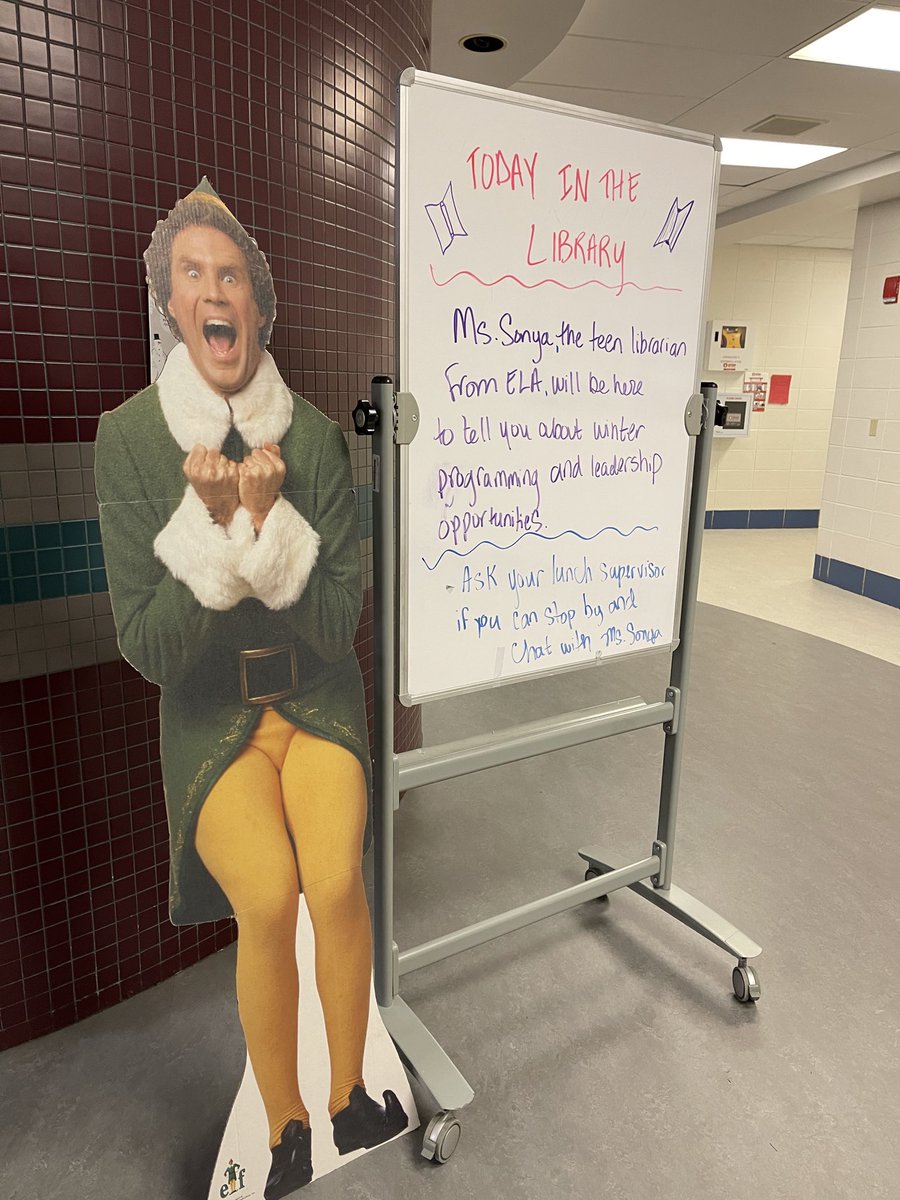 TODAY IN THE
LIBRARY
Ms. Sonya, the teen librarian
from ELA, will be here
to tell you about winter
programming and leadership
opportunities.
- Ask your lunch supervisor
if you can stop by and
Chat with Ms. Sonya
elf